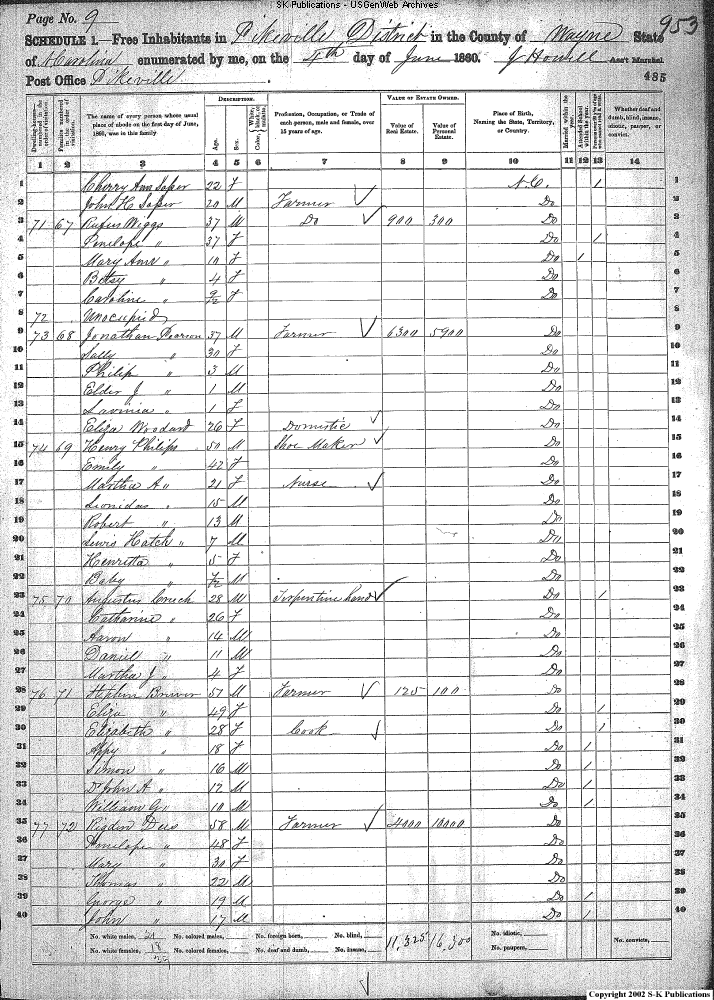 SK Publications - USGenWeb Archives
Page No. 9
953
SCHEDULE 1.—Free Inhabitants in Pikeville District in the County of Wayne State
of N Carolina enumerated by me, on the 4th day of June 1860. J Howell Ass't Marshal
Post Office Pikeville . 485
DESCRIPTION. VALUE OF ESTATE OWNED.
Dwelling-houses numbered in the order of visitation. Families numbered in the order of visitation. The name of every person whose usual place of abode on the first day of June, 1860, was in this family Age. Sex. Color, White, black, or mulatto. Profession, Occupation, or Trade of each person, male and female, over 15 years of age. Value of Real Estate. Value of Personal Estate. Place of Birth, Naming the State, Territory, or Country. Married within the year. Attended School within the year. Whether deaf and dumb, blind, insane, idiotic, pauper, or convict.
1 2 3 4 5 6 7 8 9 10 11 12 13 14
1 Cherry Ann Soper 22 F N.C. / 1
2 John H Soper 20 M Farmer Do 2
3 71 67 Rufus Wiggs 37 M Do 900 300 Do 3
4 Penelope " 37 F Do / 4
5 Mary Ann " 10 F Do / 5
6 Betsy " 4 F Do 6
7 Caroline " 9/12 F Do 7
8 72 Unoccupied 8
9 73 68 Jonathan Pearson 37 M Farmer 6300 5900 Do 9
10 Sally " 30 F Do 10
11 Philip " 3 M Do 11
12 Elder J " 1 M Do 12
13 Lavinia " 1 F Do 13
14 Eliza Woodard 26 F Domestic Do 14
15 74 69 Henry Philips 50 M Shoe Maker Do 15
16 Emily " 42 F Do 16
17 Martha A " 21 F Nurse Do 17
18 Leonidas " 15 M Do 18
19 Robert " 13 M Do 19
20 Lewis Hatch " 7 M Do 20
21 Henrietta " 5 F Do 21
22 Baby " M Do 22
23 75 70 Augustus 28 M Turpentine hand Do / 23
24 Catharine " 26 F Do 24
25 Aaron " 14 M Do 25
26 Daniel " 11 M Do 26
27 Martha J " 4 F Do 27
28 76 71 51 M Farmer 125 100 Do 28
29 Eliza " 49 F Do / 29
30 Elizabeth " 28 F Cook Do / 30
31 Appy " 18 F Do / 31
32 Simon " 16 M Do / 32
33 Dr John A " 12 M Do / 33
34 William G " 10 M Do / 34
35 77 72 Rigdon Dees 58 M Farmer 4000 10000 Do 35
36 Penelope " 48 F Do 36
37 Mary " 30 F Do 37
38 Thomas " 22 M Do 38
39 George " 19 M Do / 39
40 John " 17 M Do / 40
No. white males, 21 No. colored males, No. foreign born, No. blind, 11,325 16,300 No. idiotic,
No. white females, 18 No. colored females, No. deaf and dumb, No. insane, No. paupers, No. convicts,
Copyright 2002 S-K Publications